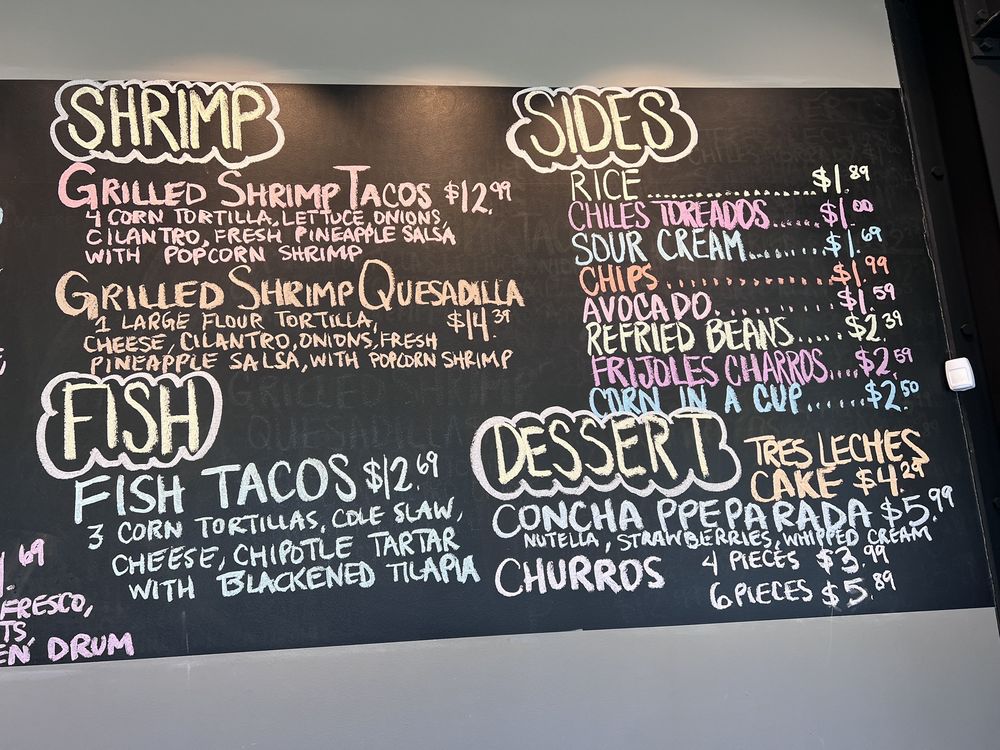 SHRIMP
GRILLED SHRIMP TACOS $12.99
4 CORN TORTILLA, LETTUCE, ONIONS,
CILANTRO, FRESH PINEAPPLE SALSA
WITH POPCORN SHRIMP
GRILLED SHRIMP QUESADILLA
1 LARGE FLOUR TORTILLA, $14.39
CHEESE, CILANTRO, ONIONS, FRESH
PINEAPPLE SALSA, WITH POPCORN SHRIMP
FISH
FISH TACOS $12.69
3 CORN TORTILLAS, COLE SLAW,
CHEESE, CHIPOTLE TARTAR
WITH BLACKENED TILAPIA
69
FRESCO,
TS,
EN DRUM
SIDES
RICE........................$1.89
CHILES TOREADOS......$1.00
SOUR CREAM..........$1.69
CHIPS..................$1.99
AVOCADO..............$1.59
REFRIED BEANS.....$2.39
FRIJOLES CHARROS...$2.59
CORN IN A CUP......$2.50
DESSERT
TRES LECHES
CAKE $4.29
CONCHA PPEPARADA $5.99
NUTELLA, STRAWBERRIES, WHIPPED CREAM
CHURROS 4 PIECES $3.99
6 PIECES $5.89